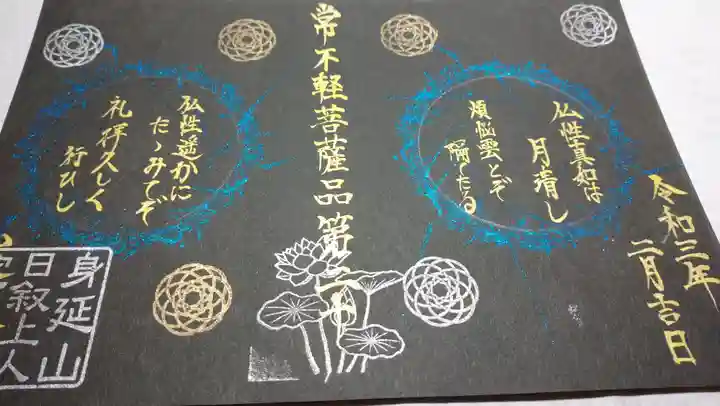 令和三年
二月吉日
仏性真如は
月清し
煩悩雲とぞ
隔たる
常不軽菩薩品第二十
仏性遥かに
たゝみてぞ
礼拝久しく
行ひし
身延山
日叙上人